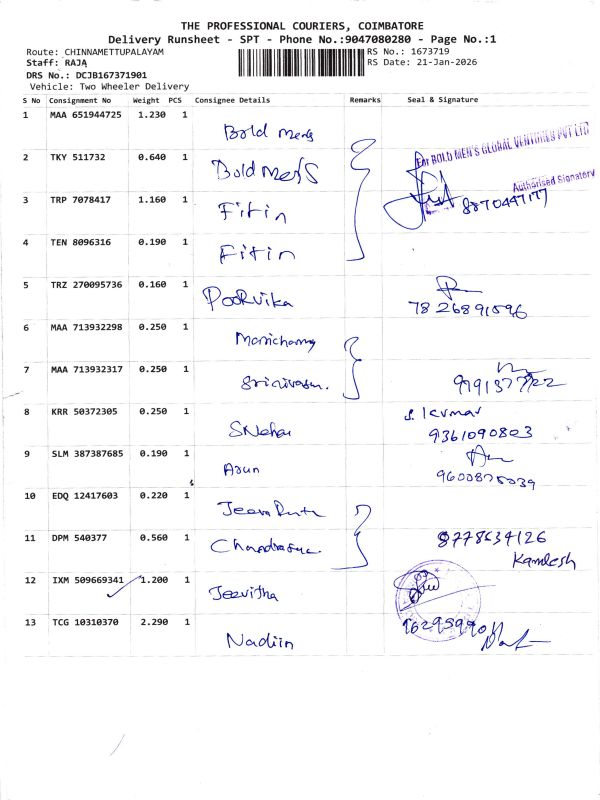 THE PROFESSIONAL COURIERS, COIMBATORE
Delivery Runsheet - SPT - Phone No.:9047080280 - Page No.:1
Route: CHINNAMETTUPALAYAM RS No.: 1673719
Staff: RAJA RS Date: 21-Jan-2026
DRS No.: DCJB167371901
Vehicle: Two Wheeler Delivery
S No Consignment No Weight PCS Consignee Details Remarks Seal & Signature
1 MAA 651944725 1.230 1 Bold mens
For BOLD MEN'S GLOBAL VENTURES PVT LTD
2 TKY 511732 0.640 1 Bold mens
Authorised Signatory
3 TRP 7078417 1.160 1 Fitin 8870447177
4 TEN 8096316 0.190 1 Fitin
5 TRZ 270095736 0.160 1 Poorvika 7826891596
6 MAA 713932298 0.250 1
7 MAA 713932317 0.250 1 Srinivasan.
8 KRR 50372305 0.250 1 S. Kumar
9361090803
9 SLM 387387685 0.190 1 Arun
10 EDQ 12417603 0.220 1
11 DPM 540377 0.560 1 8778634126
Kamlesh
12 IXM 509669341 1.200 1 Jeevitha
13 TCG 10310370 2.290 1 Nadiin